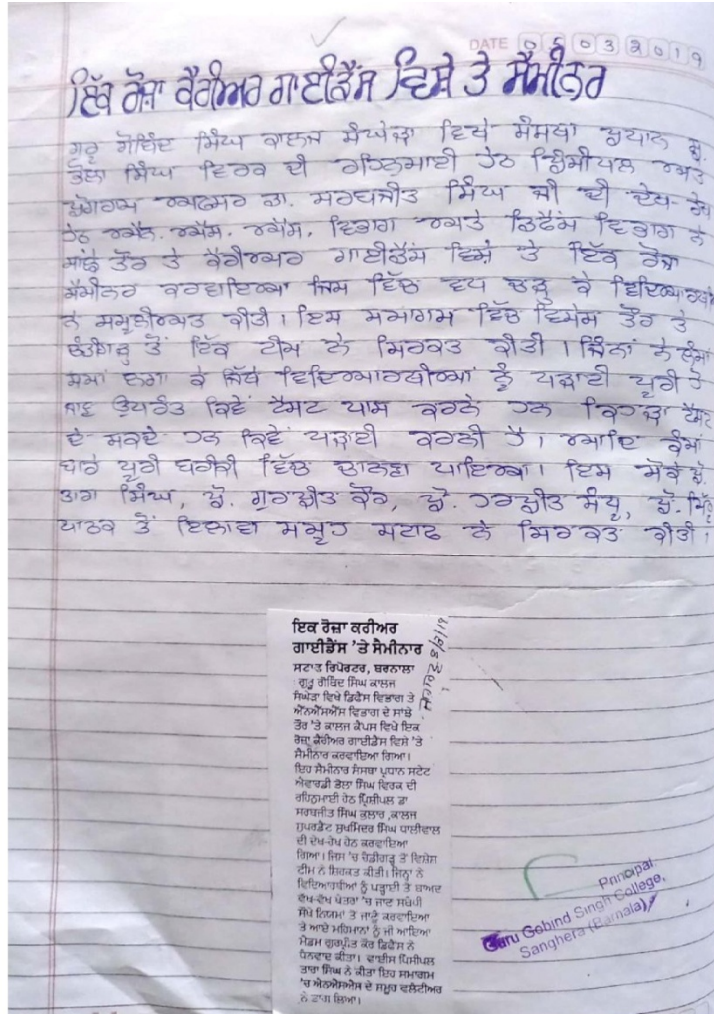 DATE 06 03 2019
ਇੱਕ ਰੋਜ਼ਾ ਕੈਰੀਅਰ ਗਾਈਡੈਂਸ ਵਿਸ਼ੇ ਤੇ ਸੈਮੀਨਰ
ਗੁਰੂ ਗੋਬਿੰਦ ਸਿੰਘ ਕਾਲਜ ਸੰਘੇੜਾ ਵਿਖੇ ਸੰਸਥਾ ਪ੍ਰਧਾਨ ਸ੍ਰ.
ਭੋਲਾ ਸਿੰਘ ਵਿਰਕ ਦੀ ਰਹਿਨੁਮਾਈ ਹੇਠ ਪ੍ਰਿੰਸੀਪਲ ਅਤੇ
ਪ੍ਰੋਗਰਾਮ ਅਫਸਰ ਡਾ. ਸਰਬਜੀਤ ਸਿੰਘ ਜੀ ਦੀ ਦੇਖ-ਰੇਖ
ਹੇਠ ਐਨ. ਐਸ. ਐਸ. ਵਿਭਾਗ ਅਤੇ ਡਿਫੈਂਸ ਵਿਭਾਗ ਨੇ
ਸਾਂਝੇ ਤੌਰ ਤੇ ਕੈਰੀਅਰ ਗਾਈਡੈਂਸ ਵਿਸ਼ੇ 'ਤੇ ਇੱਕ ਰੋਜ਼ਾ
ਸੈਮੀਨਰ ਕਰਵਾਇਆ ਜਿਸ ਵਿੱਚ ਵਧ ਚੜ੍ਹ ਕੇ ਵਿਦਿਆਰਥੀਆਂ
ਨੇ ਸਮੂਲੀਅਤ ਕੀਤੀ। ਇਸ ਸਮਾਗਮ ਵਿੱਚ ਵਿਸ਼ੇਸ ਤੌਰ ਤੇ
ਚੰਡੀਗੜ੍ਹ ਤੋਂ ਇੱਕ ਟੀਮ ਨੇ ਸ਼ਿਰਕਤ ਕੀਤੀ। ਜਿੰਨਾਂ ਨੇ ਲੰਮਾਂ
ਸਮਾਂ ਲਗਾ ਕੇ ਜਿੱਥੇ ਵਿਦਿਆਰਥੀਆਂ ਨੂੰ ਪੜਾਈ ਪੂਰੀ ਹੋ
ਜਾਣ ਉਪਰੰਤ ਕਿਵੇਂ ਟੈਸਟ ਪਾਸ ਕਰਨੇ ਹਨ ਕਿਹੜਾ ਟੈਸਟ
ਦੇ ਸਕਦੇ ਹਨ ਕਿਵੇਂ ਪੜਾਈ ਕਰਨੀ ਹੈ। ਆਦਿ ਕੰਮਾਂ
ਬਾਰੇ ਪੂਰੀ ਬਰੀਕੀ ਵਿੱਚ ਚਾਨਣਾ ਪਾਇਆ। ਇਸ ਮੌਕੇ ਪ੍ਰੋ.
ਤਾਰਾ ਸਿੰਘ, ਪ੍ਰੋ. ਗੁਰਪ੍ਰੀਤ ਕੌਰ, ਪ੍ਰੋ. ਹਰਪ੍ਰੀਤ ਸੰਧੂ, ਪ੍ਰੋ.
ਪਾਠਕ ਤੋਂ ਇਲਾਵਾ ਸਮੂਹ ਸਟਾਫ ਨੇ ਸ਼ਿਰਕਤ ਕੀਤੀ।
ਇਕ ਰੋਜ਼ਾ ਕਰੀਅਰ
ਗਾਈਡੈਂਸ 'ਤੇ ਸੈਮੀਨਾਰ
ਸਟਾਫ ਰਿਪੋਰਟਰ, ਬਰਨਾਲਾ
ਗੁਰੂ ਗੋਬਿੰਦ ਸਿੰਘ ਕਾਲਜ
ਸੰਘੇੜਾ ਵਿਖੇ ਡਿਫੈਂਸ ਵਿਭਾਗ ਤੇ
ਐੱਨਐੱਸਐੱਸ ਵਿਭਾਗ ਦੇ ਸਾਂਝੇ
ਤੌਰ 'ਤੇ ਕਾਲਜ ਕੈਂਪਸ ਵਿਖੇ ਇਕ
ਰੋਜ਼ਾ ਕੈਰੀਅਰ ਗਾਈਡੈਂਸ ਵਿਸ਼ੇ 'ਤੇ
ਸੈਮੀਨਾਰ ਕਰਵਾਇਆ ਗਿਆ।
ਇਹ ਸੈਮੀਨਾਰ ਸੰਸਥਾ ਪ੍ਰਧਾਨ ਸਟੇਟ
ਐਵਾਰਡੀ ਭੋਲਾ ਸਿੰਘ ਵਿਰਕ ਦੀ
ਰਹਿਨੁਮਾਈ ਹੇਠ ਪ੍ਰਿੰਸੀਪਲ ਡਾ
ਸਰਬਜੀਤ ਸਿੰਘ ਕੁਲਾਰ ,ਕਾਲਜ
ਸੁਪਰਡੈਂਟ ਸੁਖਮਿੰਦਰ ਸਿੰਘ ਧਾਲੀਵਾਲ
ਦੀ ਦੇਖ-ਰੇਖ ਹੇਠ ਕਰਵਾਇਆ
ਗਿਆ। ਜਿਸ 'ਚ ਚੰਡੀਗੜ੍ਹ ਤੋਂ ਵਿਸ਼ੇਸ
ਟੀਮ ਨੇ ਸ਼ਿਰਕਤ ਕੀਤੀ। ਜਿਨ੍ਹਾਂ ਨੇ
ਵਿਦਿਆਰਥੀਆਂ ਨੂੰ ਪੜ੍ਹਾਈ ਤੋਂ ਬਾਅਦ
ਵੱਖ-ਵੱਖ ਖੇਤਰਾਂ 'ਚ ਜਾਣ ਸਬੰਧੀ
ਸੌਖੇ ਨਿਯਮਾਂ ਤੋਂ ਜਾਣੂੰ ਕਰਵਾਇਆ
ਤੇ ਆਏ ਮਹਿਮਾਨਾਂ ਨੂੰ ਜੀ ਆਇਆ
ਮੈਡਮ ਗੁਰਪ੍ਰੀਤ ਕੌਰ ਡਿਫੈਂਸ ਨੇ
ਧੰਨਵਾਦ ਕੀਤਾ। ਵਾਈਸ ਪ੍ਰਿੰਸੀਪਲ
ਤਾਰਾ ਸਿੰਘ ਨੇ ਕੀਤਾ ਇਹ ਸਮਾਗਮ
'ਚ ਐੱਨਐੱਸਐੱਸ ਦੇ ਸਮੂਹ ਵਲੰਟੀਅਰ
ਨੇ ਭਾਗ ਲਿਆ।
Principal
Guru Gobind Singh College,
Sanghera (Barnala)